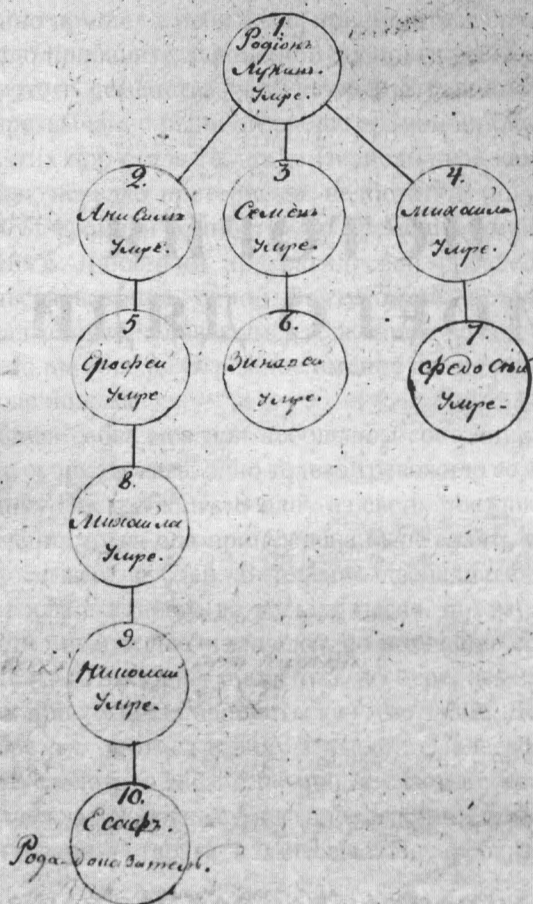 1.
Родіонъ
Лукинъ.
Умре.
2.
Анисимъ
Умре.
3
Семенъ
Умре.
4.
Михаила
Умре.
5
Ерофей
Умре
6.
Умре.
7
Федосѣй
Умре.
8.
Михаила
Умре.
9.
Николай
Умре.
10.
Есафъ.
Рода-доказатель.